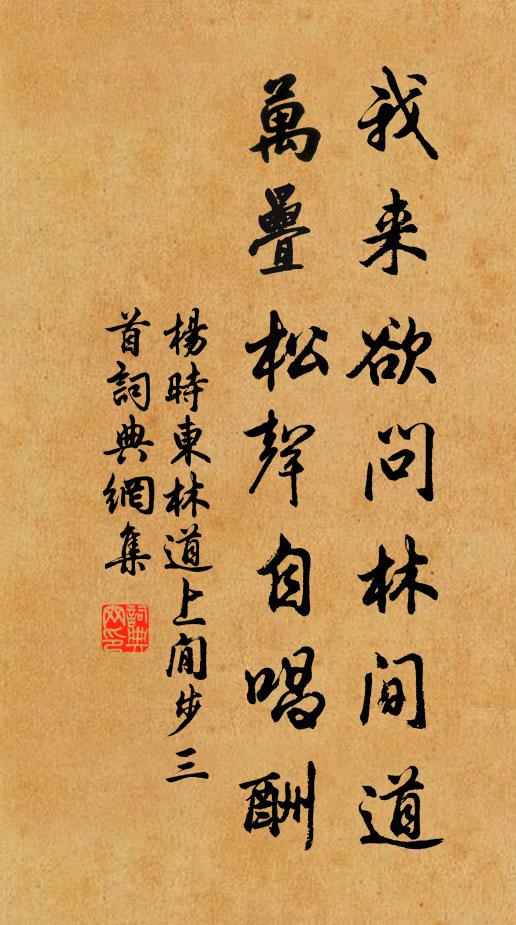 我来欲问林间道
萬疊松聲自唱酬
楊時東林道上閒步三
首詞典網集
詞典网印